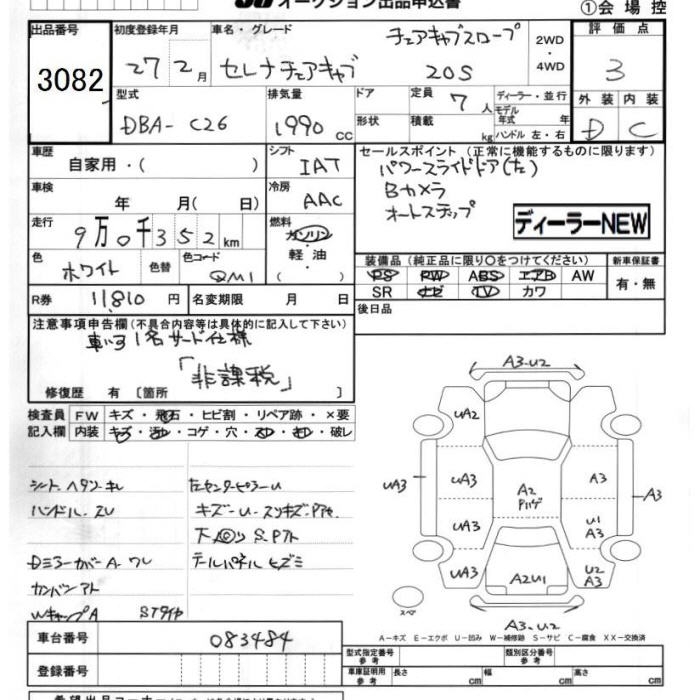 オークション出品申込書
①会場控
出品番号
3082
初度登録年月
27年2月
車名・グレード
チェアキャブスロープ
セレナチェアキャブ 20S
2WD・4WD
評価点
3
型式
DBA- C26
排気量
1990 CC
ドア
形状
定員
7人
積載
kg
ディーラー・並行
モデル年式 年
ハンドル 左・右
外装 内装
D C
車歴
自家用・( )
シフト
IAT
車検
年 月( 日)
冷房
AAC
走行
9万0千352km
燃料
ガソリン
軽・油
( )
色
ホワイト
色替
色コード
QM1
R券 11,810円
名変期限 月 日
セールスポイント (正常に機能するものに限ります)
パワースライドドア(左)
Bカメラ
オートステップ
ディーラーNEW
装備品 (純正品に限り○をつけてください)
新車保証書
PS PW ABS エアB AW
SR ナビ TV カワ
有・無
後日品
注意事項申告欄(不具合内容等は具体的に記入して下さい)
車いす1名サード仕様
「非課税」
修復歴 有 〔箇所 〕
検査員記入欄
FW キズ・飛石・ヒビ割・リペア跡・×要
内装 キズ・汚レ・コゲ・穴・スレ・キレ・破レ
シートヘタリ・キレ
ハンドル・スレ
Dミラーカバー A・ワレ
カンバンアト
WキャップA STタイヤ
左センターピラーU
キズ・U・スリキズ・Pアセ
下回りS・Pアト
テールパネルヒズミ
A3・U2
UA2
UA3
UA3
UA3
UA3
A2
Pハゲ
A3
A3
U1
A3
U2
A3
A2U1
スペア
A3・U2
A-キズ E-エクボ U-凹み W-補修跡 S-サビ C-腐食 XX-交換済
車台番号
083484
登録番号
型式指定番号
参考
類別区分番号
参考
車庫証明用
参考
長さ cm
幅 cm
高さ cm